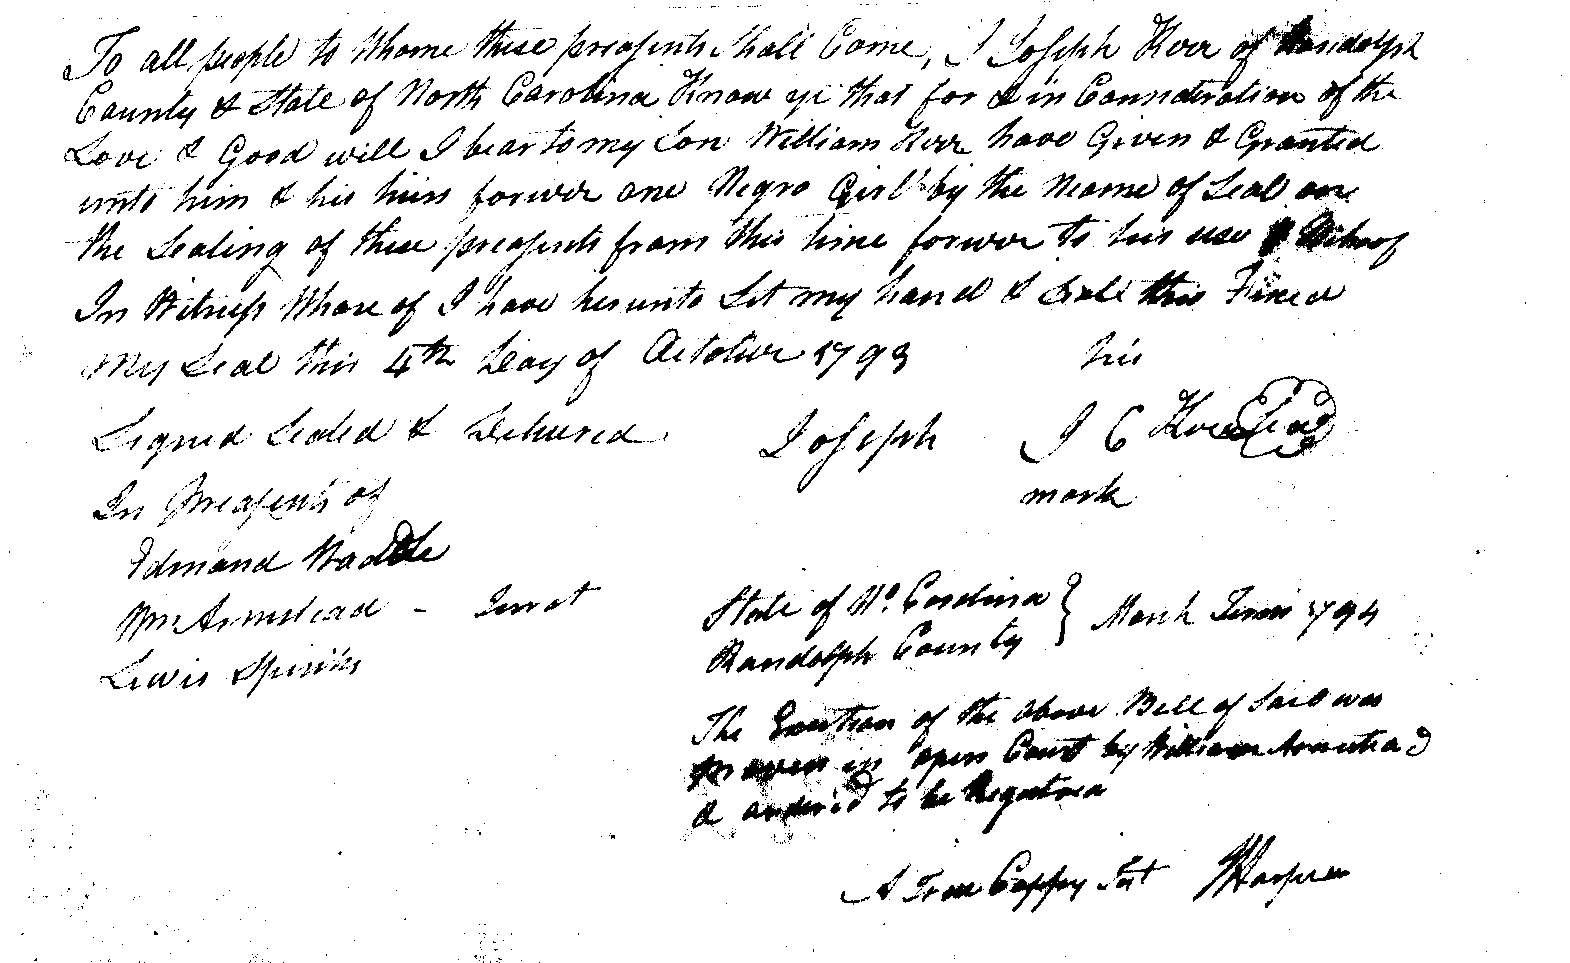 To all people to Whome these preasents Shall Come, I Joseph Kerr of Randolph
County & State of North Carolina Know ye that for & in Consideration of the
Love & Good will I bear to my Son William Kerr have Given & Granted
unto him & his heirs forever one Negro Girl by the Neame of Seal one
the Sealing of these preasents from this time forever to his use & Behoof
In Witness Whare of I have hereunto Set my hand & Seale this Fixed
My Seal this 4th Day of October 1793 his
Signed Sealed & Delivered Joseph J C Kerr Seal
In Preasents of mark
Edmond Waddle
Wm Armstead - Jurat State of No. Carolina } March Term 1794
Lewis Spinks Randolph County
The Exection of the above Bill of Sale was
proven in open Court by William Armstead
& ordered to be Registred
A True Coppy Test J Harper